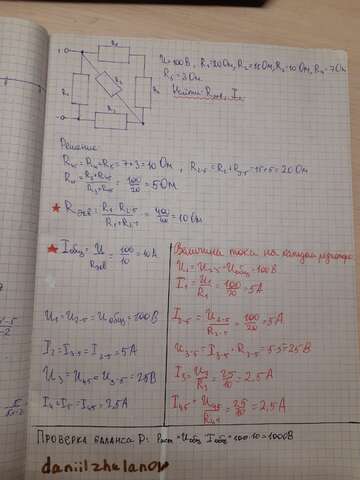 U=100В, R₁=20Ом, R₂=15Ом, R₃=10Ом, R₄=7Ом
R₅=3Ом
Найти
Решение
R₄₅=R₄+R₅=7+3=10 Ом, R₂₋₅=R₂+R₃₋₅=15+5=20Ом
= 100/20 = 5Ом
★ Rэкв = R₁·R₂₋₅/R₁+R₂₋₅ = = 10Ом
★ Iобщ = U/Rэкв = 100/10 = 10А
Величина тока на каждом
U₁=U₂₋₅=Uобщ=100В
I₁ = U₁/R₁ = 100/20 = 5А
U₁=U₂₋₅=Uобщ=100В
I₂₋₅ = U₂₋₅/R₂₋₅ = 100/20 = 5А
I₂=I₃₋₅=I₂₋₅=5А
U₃₋₅=I₃₋₅·R₃₋₅=5·5=25В
U₃=U₄₅=U₃₋₅=25В
I₃ = U₃/R₃ = 25/10 = 2,5А
I₄=I₅=I₄₅=2,5А
= 25/10 = 2,5А
Проверка баланса P: Pист=Uобщ·Iобщ=100·10=1000В
daniilzhelanov